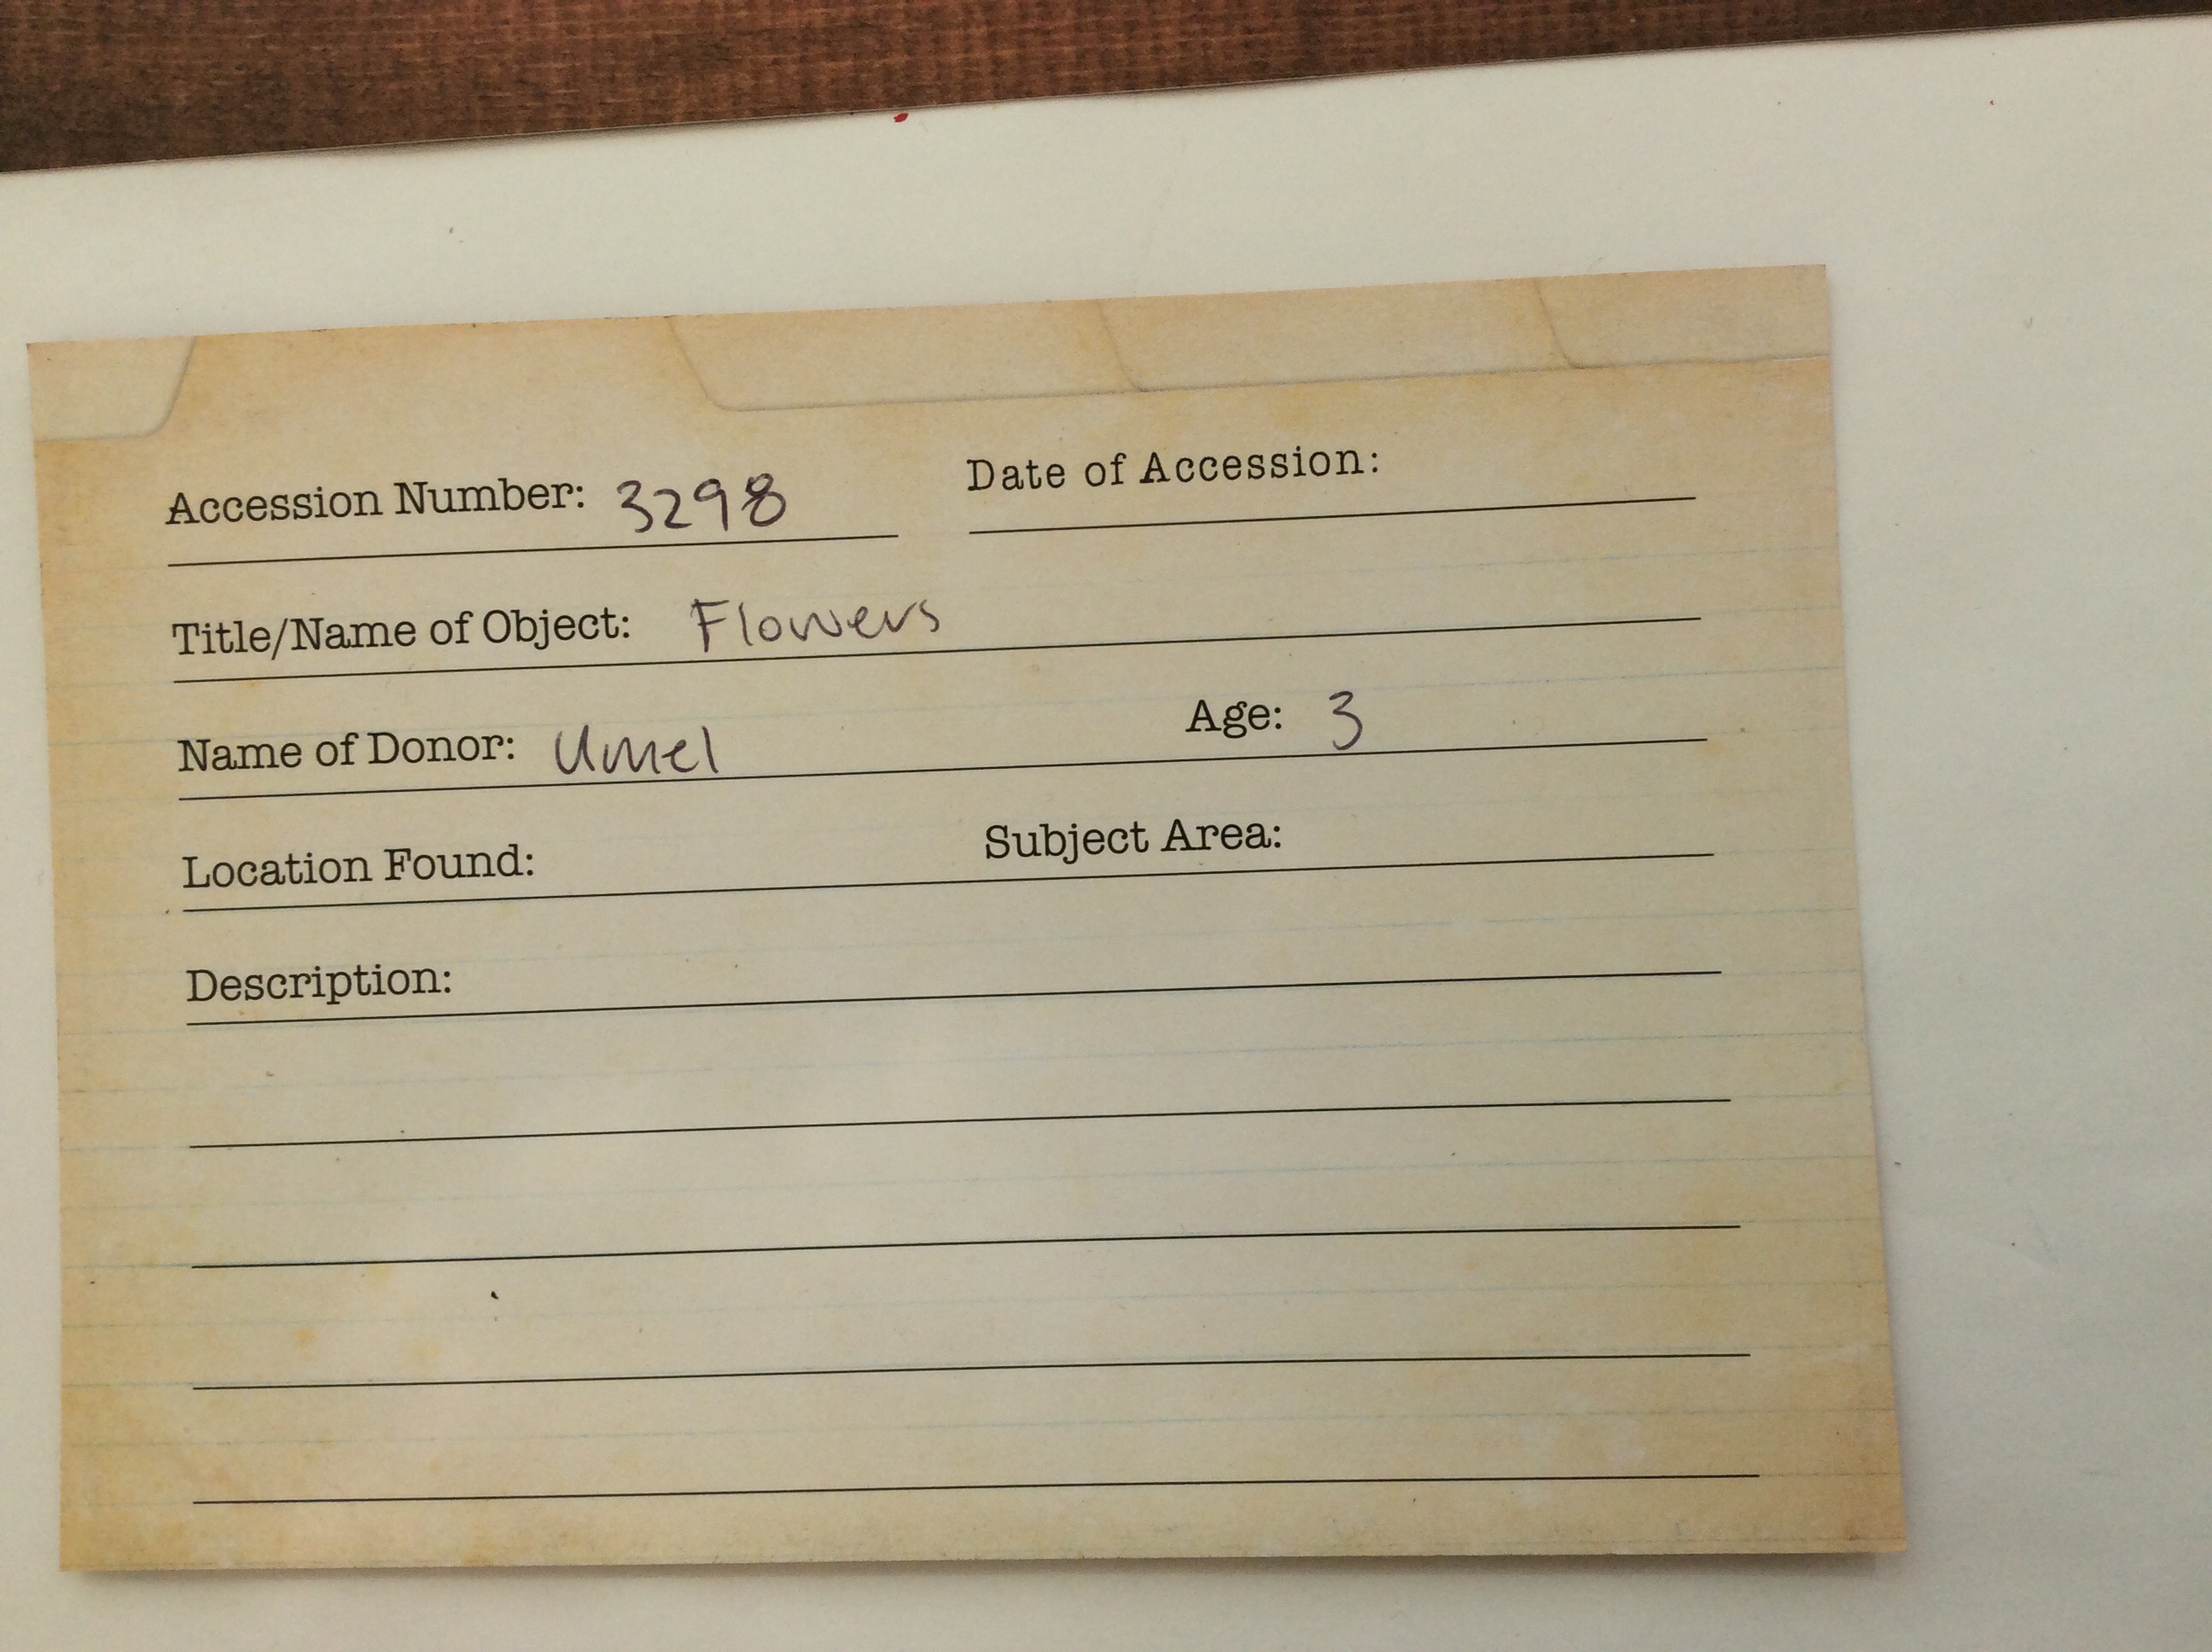 Accession Number: 3298 Date of Accession:
Title/Name of Object: Flowers
Name of Donor: Umel Age: 3
Location Found: Subject Area:
Description: